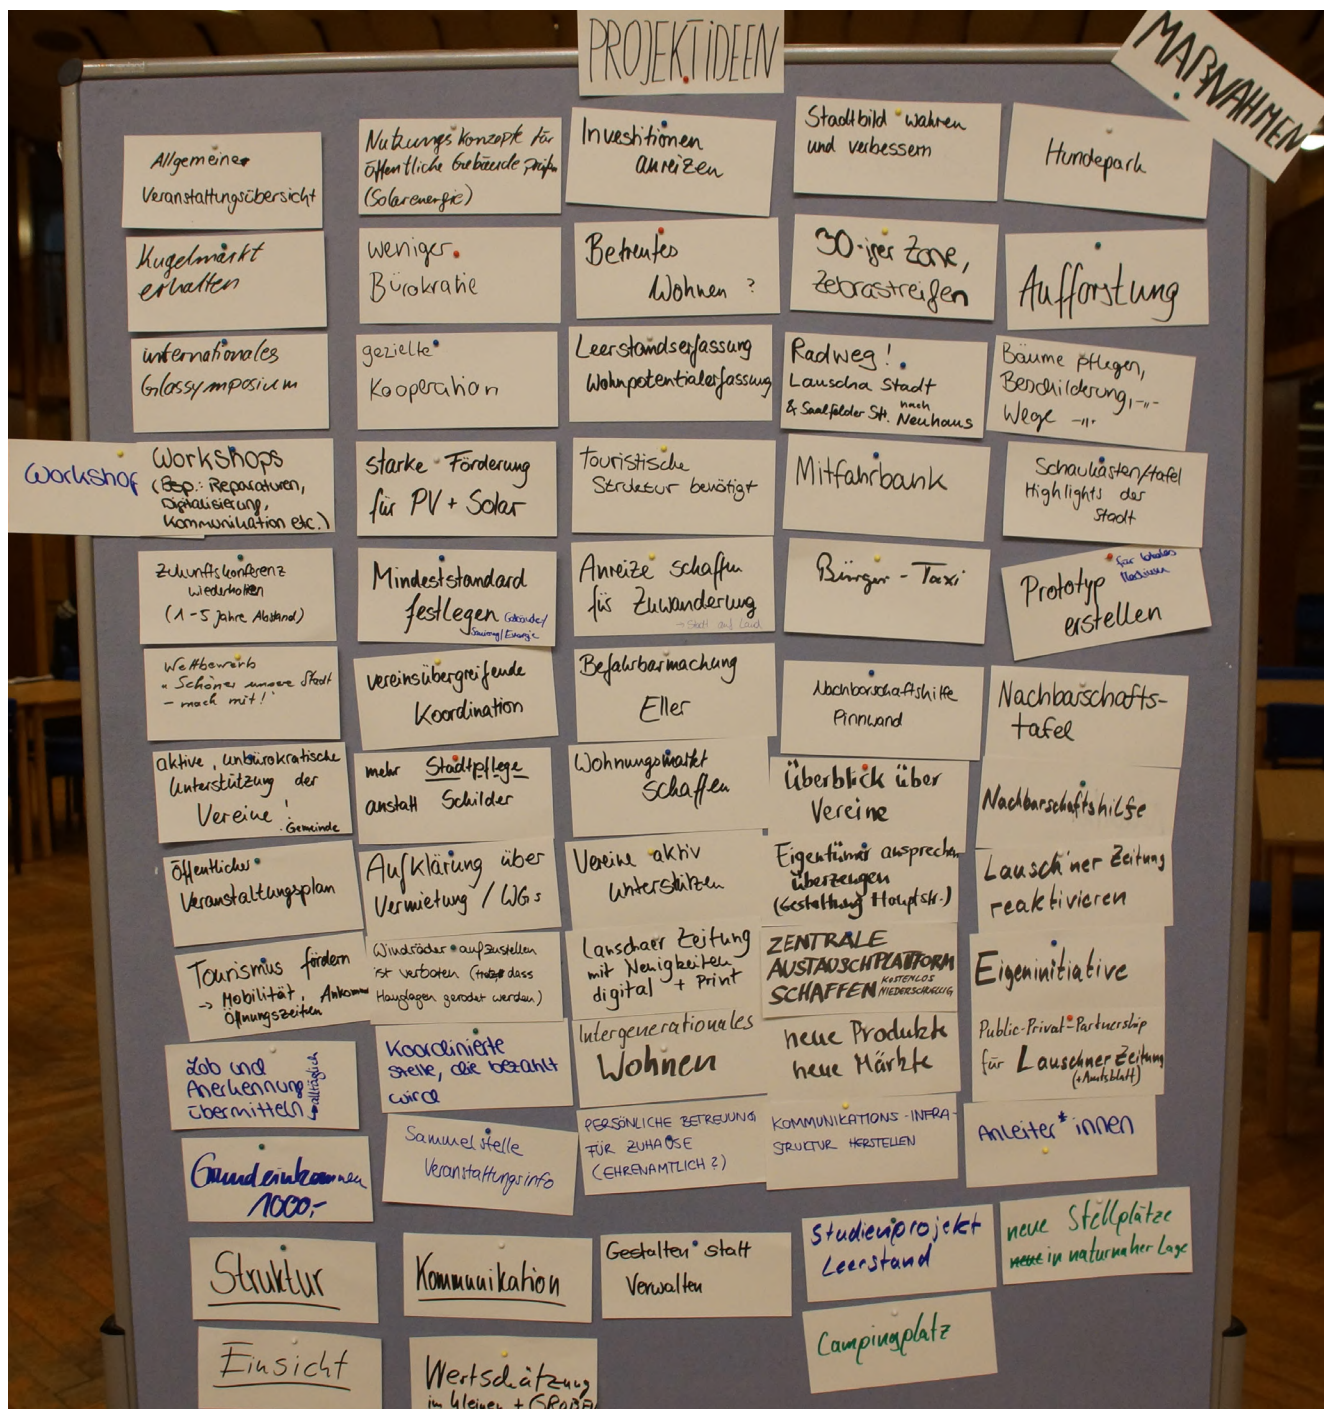 PROJEKTIDEEN
MAßNAHMEN
Allgemeine
Veranstaltungsübersicht
Kugelmarkt
erhalten
internationales
Glassymposium
Workshop
Workshops
(Bsp.: Reparaturen,
Digitalisierung,
Kommunikation etc.)
Zukunftskonferenz
wiederholen
(1-5 Jahre Abstand)
Wettbewerb
"Schöner unsere Stadt
- mach mit!"
aktive, unbürokratische
Unterstützung der
Vereine!
Gemeinde
Öffentlicher
Veranstaltungsplan
Tourismus fördern
→ Mobilität, Ankommen
Öffnungszeiten
Lob und
Anerkennung
übermitteln
alltäglich
Grundeinkommen
1000,-
Struktur
Einsicht
Nutzungskonzepte für
öffentliche Gebäude prüfen
(Solarenergie)
weniger
Bürokratie
gezielte
Kooperation
starke Förderung
für PV + Solar
Mindeststandard
festlegen
Gebäude/
Sanierung/Energie
vereinsübergreifende
Koordination
mehr Stadtpflege
anstatt Schilder
Aufklärung über
Vermietung / WGs
Windräder aufzustellen
ist verboten (trotz dass
Hanglagen gerodet werden)
Koordinierte
Stelle, die bezahlt
wird
Sammelstelle
Veranstaltungsinfo
Kommunikation
Wertschätzung
im kleinen + GROßEN
Investitionen
anreizen
Betreutes
Wohnen ?
Leerstandserfassung
Wohnpotentialerfassung
Touristische
Struktur benötigt
Anreize schaffen
für Zuwanderung
→ Stadt auf Land
Befahrbarmachung
Eller
Wohnungsmarkt
schaffen
Vereine aktiv
unterstützen
Lauschaer Zeitung
mit Neuigkeiten
digital + Print
Intergenerationales
Wohnen
PERSÖNLICHE BETREUUNG
FÜR ZUHAUSE
(EHRENAMTLICH?)
Gestalten statt
Verwalten
Stadtbild wahren
und verbessern
30-iger Zone,
Zebrastreifen
Radweg!
Lauscha Stadt
nach
& Saalfelder Str. Neuhaus
Mitfahrbank
Bürger - Taxi
Nachbarschaftshilfe
Pinnwand
Überblick über
Vereine
Eigentümer ansprechen
überzeugen
(Gestaltung Hauptstr.)
ZENTRALE
AUSTAUSCHPLATTFORM
SCHAFFEN
KOSTENLOS
NIEDERSCHWELLIG
neue Produkte
neue Märkte
KOMMUNIKATIONS-INFRA-
STRUKTUR HERSTELLEN
Studienprojekt
Leerstand
Campingplatz
Hundepark
Aufforstung
Bäume pflegen,
Beschilderung, -"-
Wege -"-
Schaukästen/tafel
Highlights der
Stadt
Prototyp
erstellen
Nachbarschafts-
tafel
Nachbarschaftshilfe
Lausch'ner Zeitung
reaktivieren
Eigeninitiative
Public-Privat-Partnership
für Lauschner Zeitung
(+Amtsblatt)
Anleiter*innen
neue Stellplätze
in naturnaher Lage